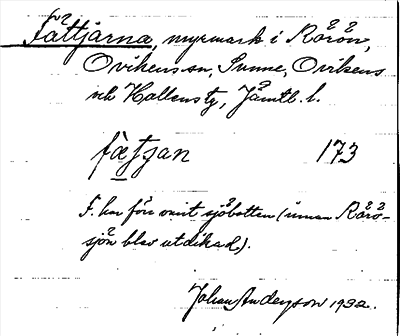 Fåttjärna, myrmark i Rörön,
Ovikens sn, Sunne, Ovikens
och Hallens tg, Jämtl. l.
173
F. har förr varit sjöbotten (innan Rörö-
sjön blev utdikad).
Johan Anderzson 1932.